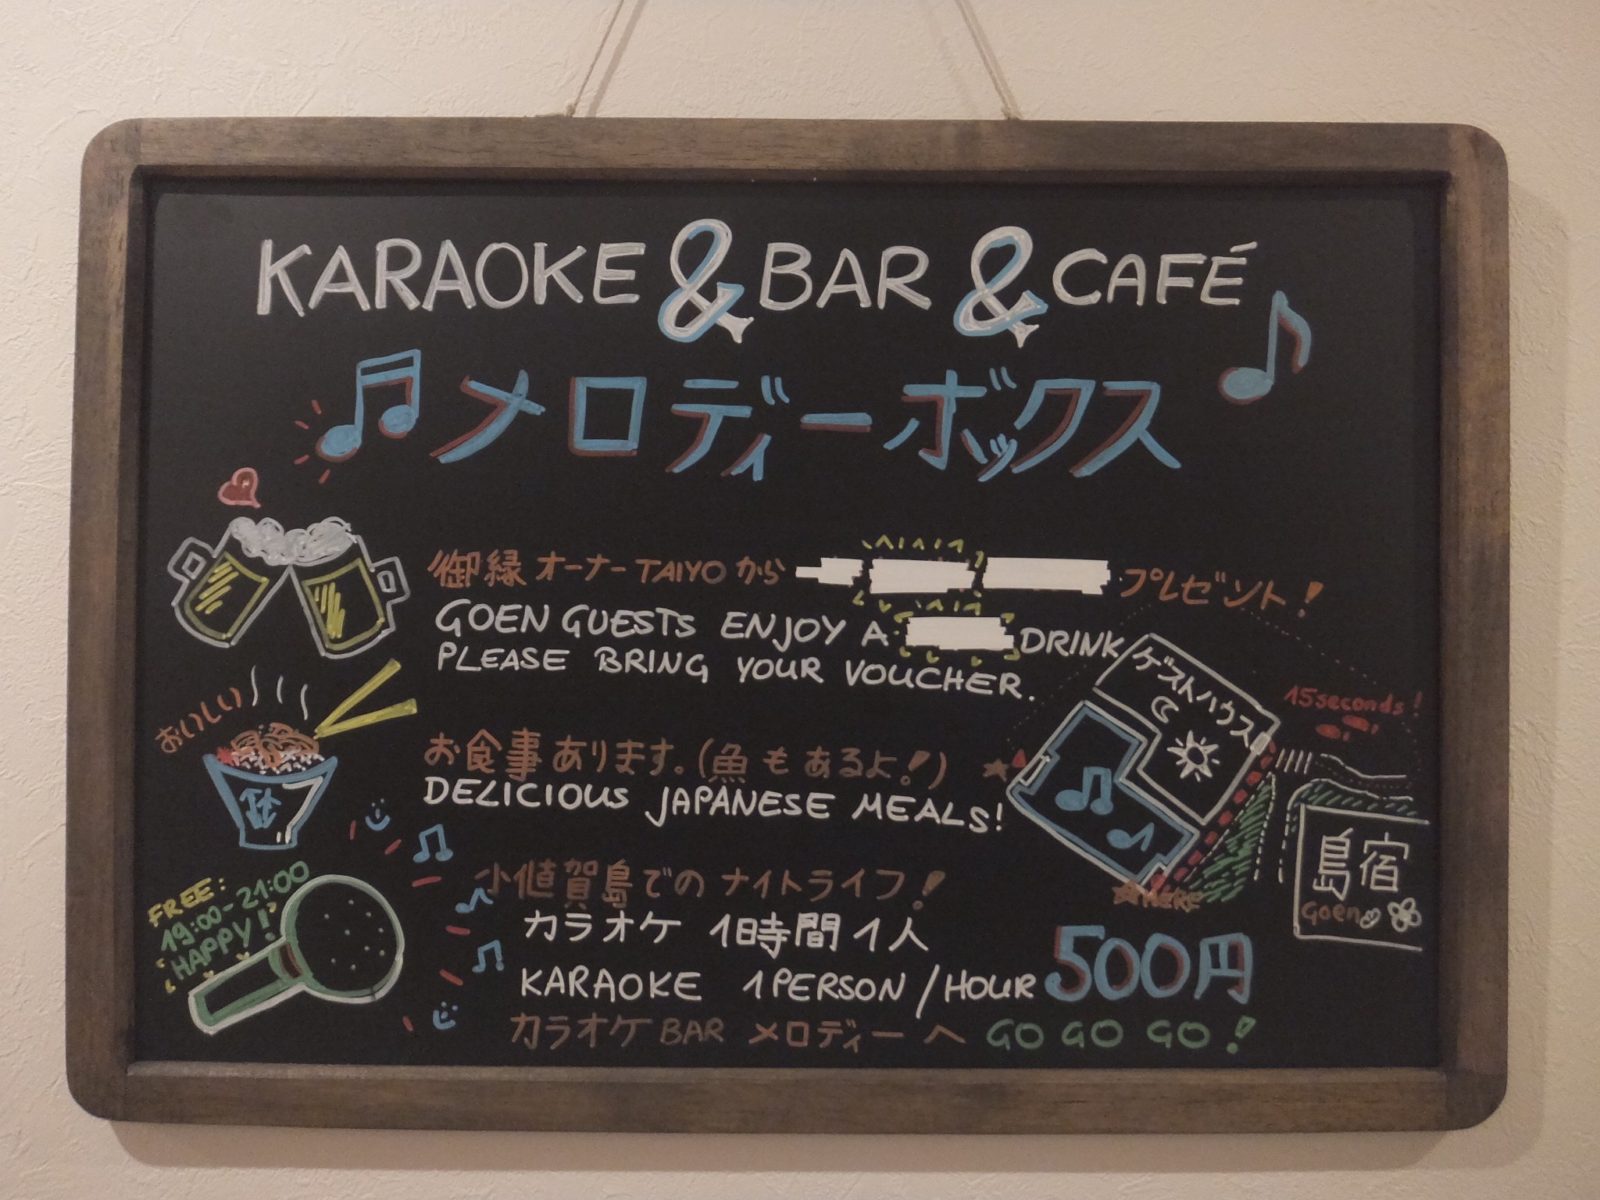 KARAOKE & BAR & CAFÉ
メロディーボックス
御縁オーナーTAIYOから プレゼント!
GOEN GUESTS ENJOY A DRINK
PLEASE BRING YOUR VOUCHER.
ゲストハウス
15seconds!
おいしい
お食事あります。(魚もあるよ!)
DELICIOUS JAPANESE MEALS!
島宿
Goen
HERE
FREE:
19:00-21:00
HAPPY!
小値賀島でのナイトライフ!
カラオケ 1時間1人
KARAOKE 1PERSON/HOUR 500円
カラオケBAR メロディーへ GO GO GO!